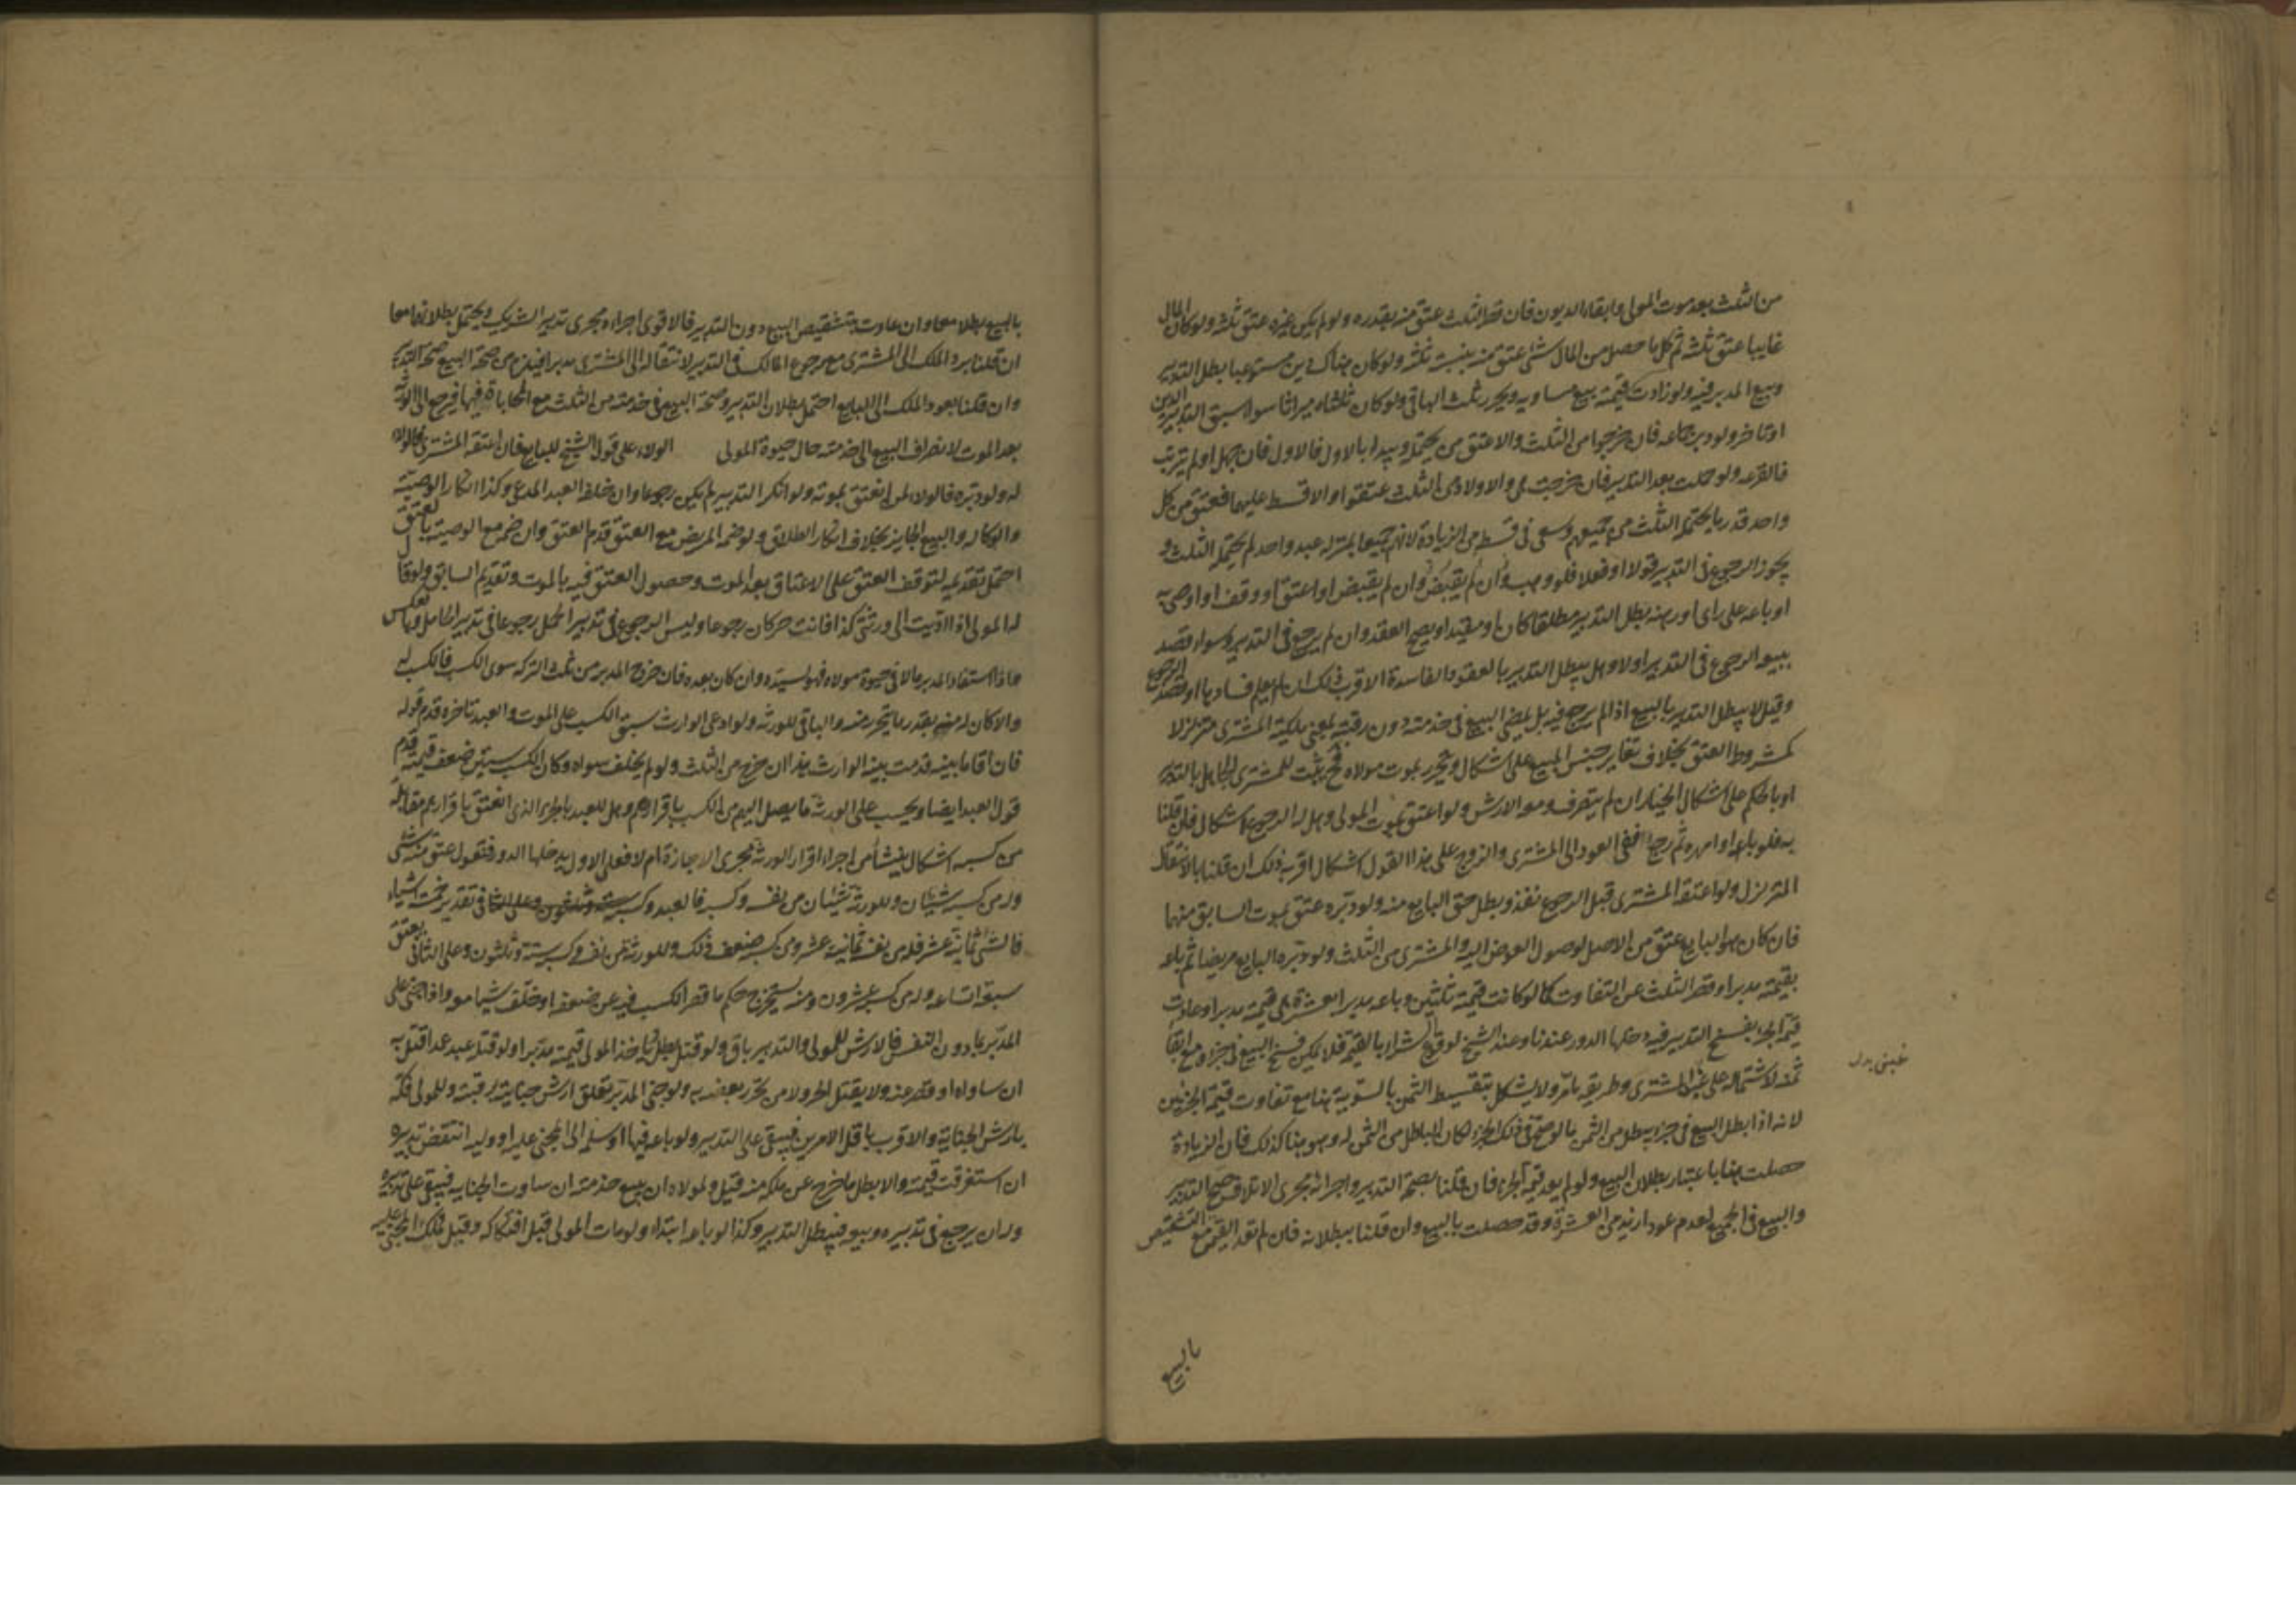 من الثلث بعد موت المولى وايفاء الديون فان قصر الثلث عتق منه بقدره ولو لم يكن غيره عتق ثلثه ولو كان المال
غايبا عتق ثلثه ثم كل ما حصل من المال شئ عتق منه بنسبة ثلثه ولو كان هناك دين مستوعبا بطل التدبير
وبيع المدبر فيه ولو زادت قيمته بيع مساويه ويحرر ثلث الباقي ولو كان ثلثاه ميراثا سواء سبق التدبير الدين
او تاخر ولو دبر جماعه فان خرجوا من الثلث والا عتق من يحتمله ويبدا بالاول فالاول فان جهل او لم يرتب
فالقرعه ولو حملت بعد التدبير فان خرجت هى والاولاد من الثلث عتقوا والا قسط عليهما فعتق من كل
واحد قدر ما يحتمله الثلث من جميعهم وسعى فى قسطه من الزيادة لانهم جميعا بمنزله عبد واحد لم يحتمله الثلث و
يجوز الرجوع فى التدبير قولا او فعلا فلو وهب وان لم يقبض او اعتق او وقف او اوصى به
او باعه على راى او رهنه بطل التدبير مطلقا كان او مقيدا ويصح العقد وان لم يرجع فى التدبير وسواء قصد
ببيعه الرجوع فى التدبير او لا وهل يبطل التدبير بالعقود الفاسدة الاقرب ذلك ان لم يعلم فسادها او قصد الرجوع
وقيل لا يبطل التدبير بالبيع اذا لم يرجع فيه بل يمضى البيع فى خدمته دون رقبته بمعنى ملكية المشترى متزلزلا
كمشروط العتق بخلاف تغاير جنس المبيع على اشكال ويحرر بموت مولاه فح يثبت للمشترى الجاهل بالتدبير
او بالحكم على اشكال الخيار ان لم يتصرف ومعه الارش ولو اعتق بموت المولى وهل له الرجوع اشكال فان قلنا
به فلو باعه او امهره ثم رجع ففى العود الى المشترى والزوج على هذا القول اشكال اقربه ذلك ان قلنا بالانتقال
المتزلزل ولو اعتقه المشترى قبل الرجوع نفذ وبطل حق البايع منه ولو دبره عتق بموت السابق منهما
فان كان هو البايع عتق من الاصل لوصول العوض اليه والمشترى من الثلث ولو دبره البايع مريضا ثم باعه
بقيمته مدبرا وقصر الثلث عن التفاوت كما لو كانت قيمته ثلثين وباعه مدبرا بعشرة هى قيمته مدبرا وعادت
قيمة الجزء بفسخ التدبير فيه دخلها الدور عندنا وعند الشيخ لوقوع الشراء بالقيمة فلا يمكن فسخ البيع فى جزء مع ابقا
ثمنه لاشتماله على غبن المشترى وطريقه ما مر ولا يشكل بتقسيط الثمن بالسوية هنا مع تفاوت قيمة الجزئين
لانه اذا بطل البيع فى جزء بطل من الثمن ما لو صح فى ذلك الجزء لكان الباطل من الثمن له وهو هنا كذلك فان الزيادة
حصلت هنا باعتبار بطلان البيع ولو لم يعد قيمة الجزء فان قلنا بصحة التدبير واجرائه مجرى الاتلاف صح التدبير
والبيع فى الجميع لعدم عود ازيد من العشرة وقد حصلت بالبيع وان قلنا ببطلانه فان لم تعد القيمة مع التشقيص
بالبيع
غبنى بدل
بالبيع بطلا معا وان عادت بتشقيص البيع دون التدبير فالاقوى اجراءه مجرى تدبير الشريك ويحتمل بطلانهما معا
ان قلنا برد الملك الى المشترى مع رجوع المالك فى التدبير لانتقاله الى المشترى مدبرا فيلزم من صحة البيع صحة التدبير
وان قلنا بعود الملك الى البايع احتمل بطلان التدبير وصحة البيع فى خدمته من الثلث مع المحاباة فيها فيرجع الى الورثة
بعد الموت لانصراف البيع الى خدمته حال حيوة المولى الولاء على قول الشيخ للبايع فان اعتقه المشترى فالولاء
له ولو دبره فالولاء لمن انعتق بموته ولو انكر التدبير لم يكن رجوعا وان حلف العبد المدعى وكذا انكار الوصية
والوكاله والبيع الجايز بخلاف انكار الطلاق ولو ضمه المريض مع العتق قدم العتق وان ضم مع الوصية بالعتق
احتمل تقديمه لتوقف العتق على الاعتاق بعد الموت وحصول العتق فيه بالموت وتقديم السابق ولو قال
له المولى اذا اديت الى ورثتى كذا فانت حر كان رجوعا وليس الرجوع فى تدبير الحمل رجوعا فى تدبير الحامل وبالعكس
واذا استفاد المدبر مالا فى حيوة مولاه فهو لسيده وان كان بعده فان خرج المدبر من ثلث التركه سوى الكسب فالكسب له
والا كان له منه بقدر ما يتحرر منه والباقى للورثه ولو ادعى الوارث سبق الكسب على الموت والعبد تاخره قدم قوله
فان اقاما بينه قدمت بينه الوارث هذا ان خرج من الثلث ولو لم يخلف سواه وكان الكسب ستين ضعف قيمته قدم
قول العبد ايضا ويحسب على الورثة ما يصل اليهم من الكسب باقرارهم وهل للعبد بالجزء الذى انعتق باقرارهم مقابله
من كسبه اشكال ينشا من اجراء اقرار الورثة مجرى الاجازة ام لا فعلى الاول يدخلها الدور فنقول عتق منه شئ
وله من كسبه شيئان وللورثه شيئان من نفسه وكسبه فالعبد وكسبه فى تقدير خمسة اشياء
فالشئ ثمانية عشر فله من نفسه ثمانية عشر ومن كسبه ضعف ذلك وللورثه من نفسه وكسبه ستة وثلثون وعلى الثانى يعتق
سبعة اتساعه وله من كسبه عشرون ومنه يستخرج حكم ما قصر الكسب فيه عن ضعفه او خلف شيئا معه واذا جنى على
المدبر بما دون النفس فالارش للمولى والتدبير باق ولو قتل بطل ياخذ المولى قيمته مدبرا ولو قتله عبد عمدا قتل به
ان ساواه او قصر عنه ولا يقتل الحر ولا من تحرر بعضه به ولو جنى المدبر تعلق ارش جنايته برقبته وللمولى فكه
بارش الجناية والاقرب باقل الامرين فيبقى على التدبير ولو باعه فيها او سلمه الى المجنى عليه او وليه انتقض تدبيره
ان استغرقت قيمته والا بطل ما خرج عن ملكه منه قيل ولمولاه ان يبيع خدمته ان ساوت الجنايه فيبقى على تدبيره
وله ان يرجع فى تدبيره وبيعه فيبطل التدبير وكذا لو باعه ابتداء ولو مات المولى قبل افتكاكه وقبل تملك المجنى عليه